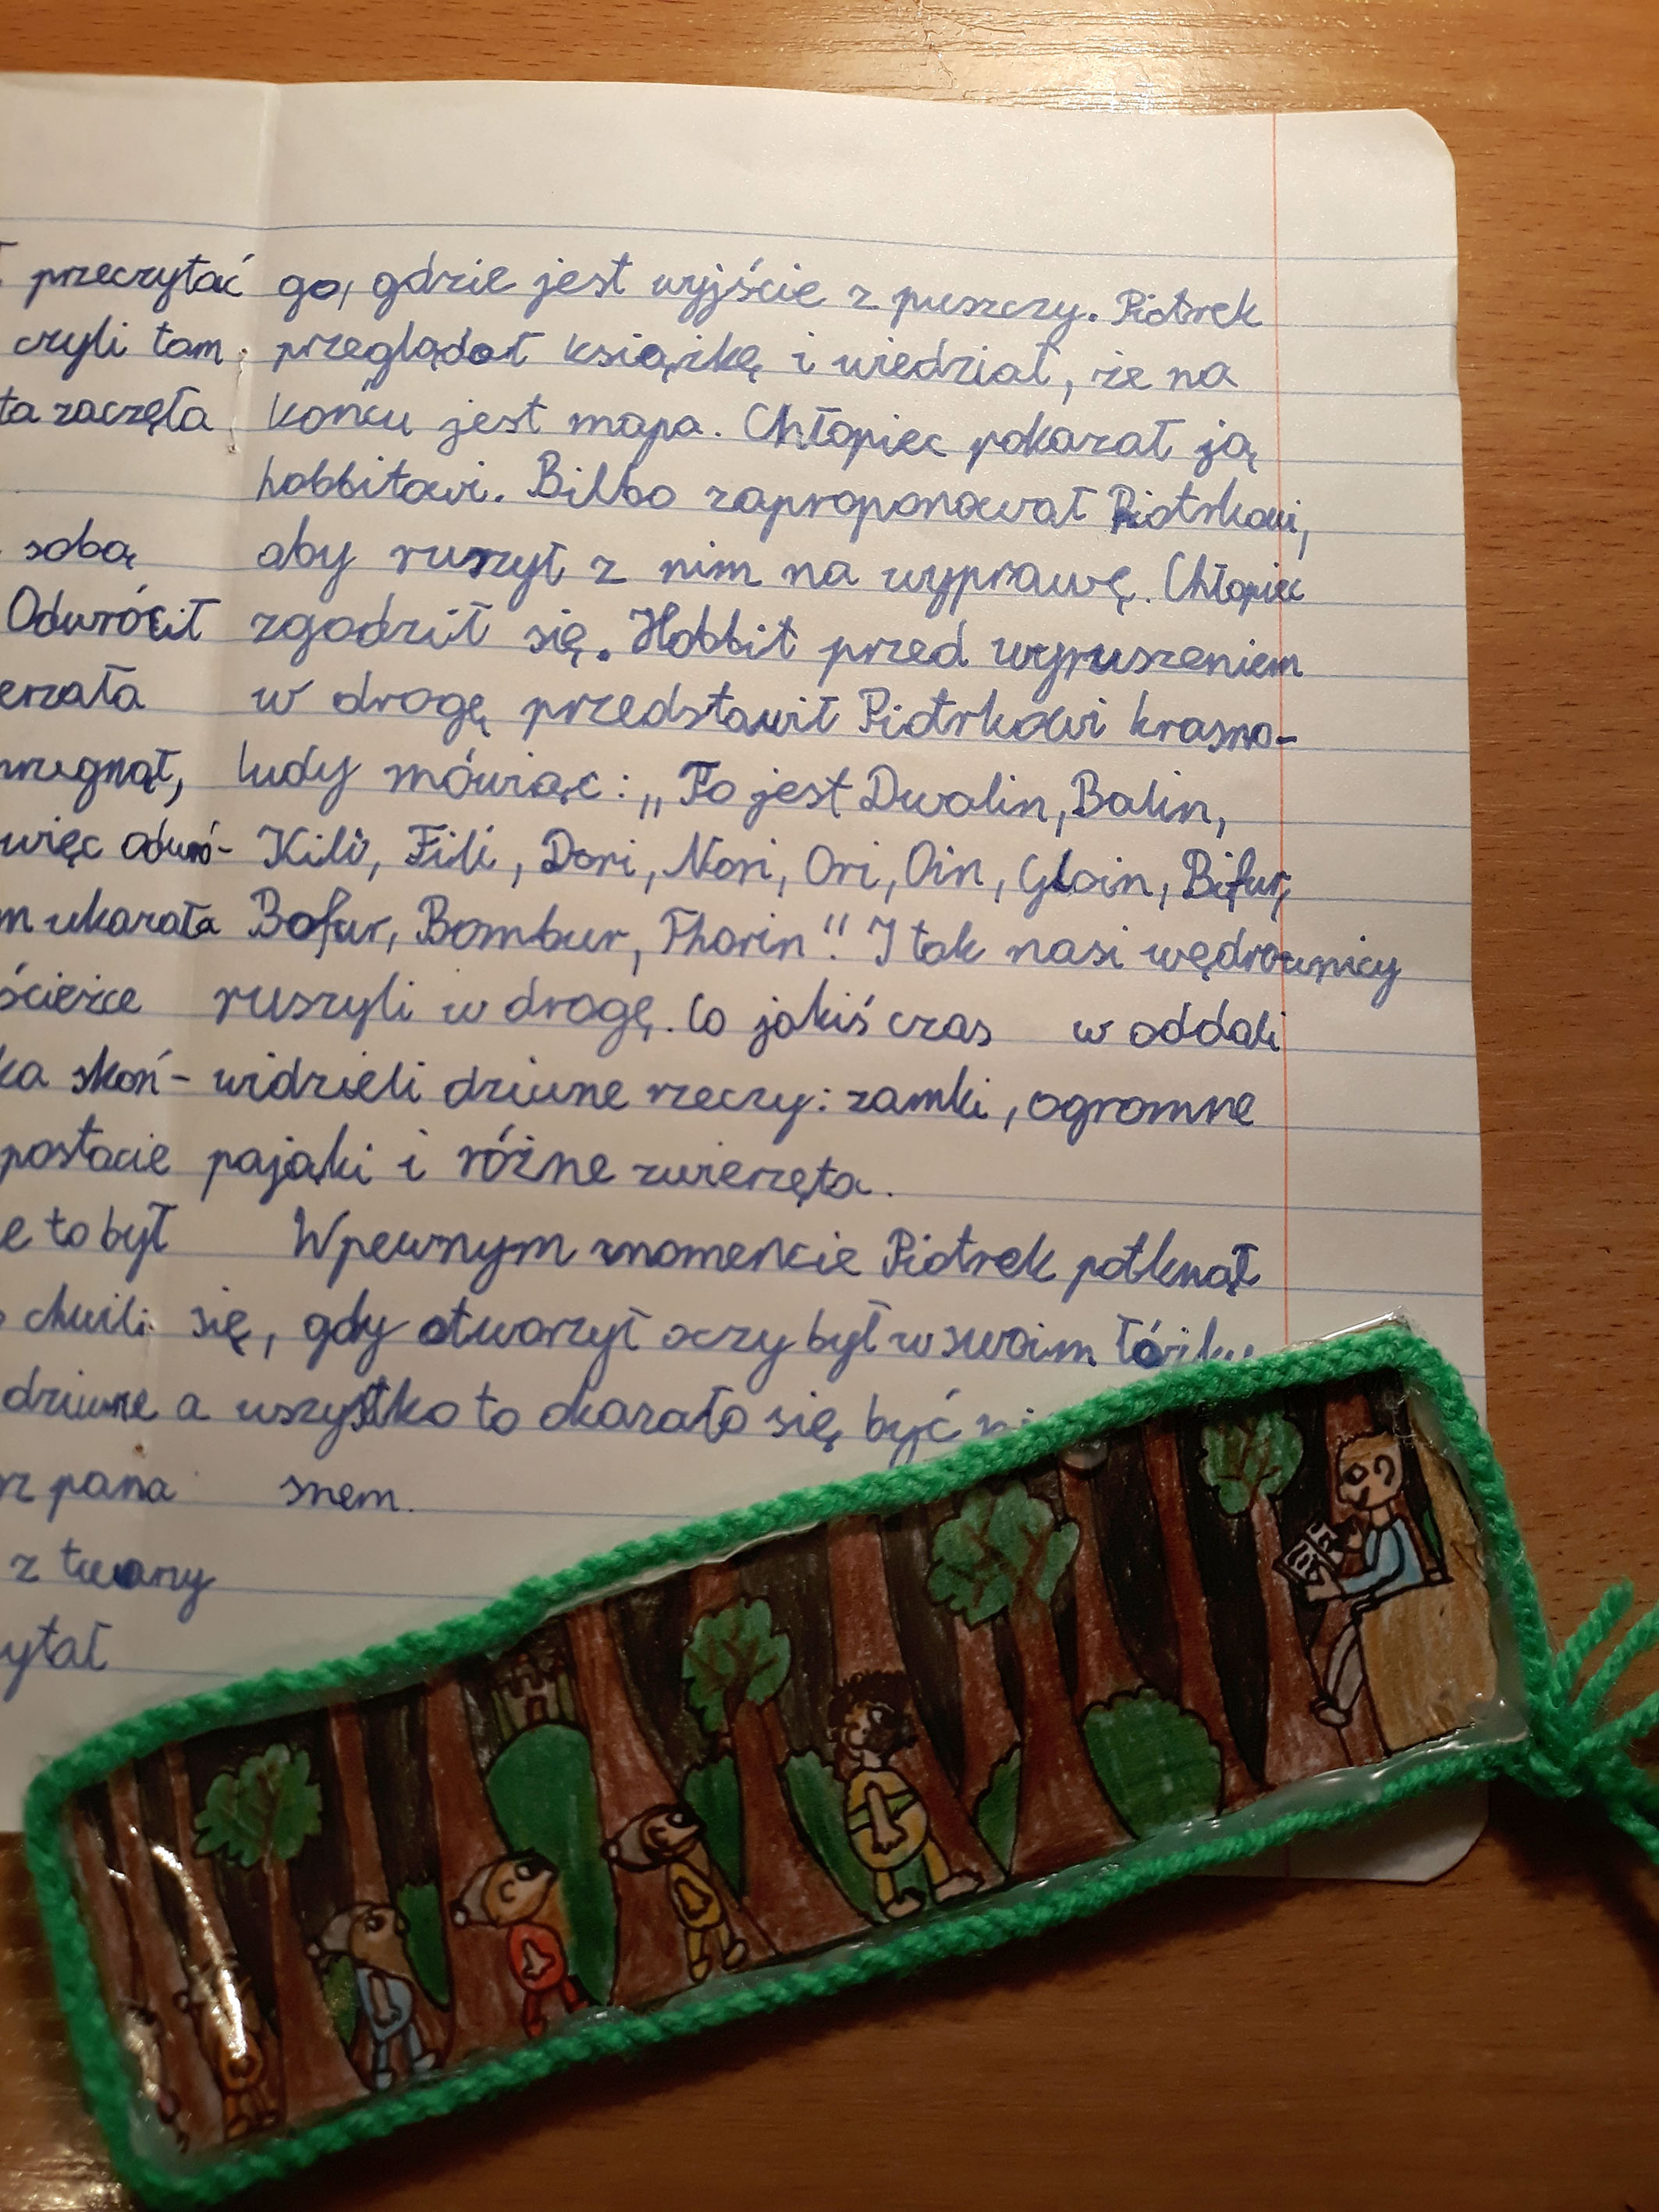 przeczytać
czyli tam
ta zaczęła
sobą
Odwrócił
erzała
więc odwró-
m ukazała
ścieżce
ka skoń-
postacie
e to był
chwili
dziwne
rz pana
z twarzy
ytał
go, gdzie jest wyjście z puszczy. Piotrek
przeglądał książkę i wiedział, że na
końcu jest mapa. Chłopiec pokazał ją
hobbitowi. Bilbo zaproponował Piotrkowi,
aby ruszył z nim na wyprawę. Chłopiec
zgodził się. Hobbit przed wyruszeniem
w drogę przedstawił Piotrkowi krasno-
ludy mówiąc: „To jest Dwalin, Balin,
Kili, Fili, Dori, Nori, Ori, Oin, Gloin, Bifur,
Bofur, Bombur, Thorin". I tak nasi wędrownicy
ruszyli w drogę. Co jakiś czas w oddali
widzieli dziwne rzeczy: zamki, ogromne
pająki i różne zwierzęta.
W pewnym momencie Piotrek potknął
się, gdy otworzył oczy był w swoim łóżku
a wszystko to okazało się być
snem.